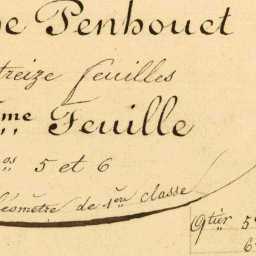 Penhouet
treize feuilles
me Feuille
os 5 et 6
Géomètre de 1ère classe
Qtier 5
6